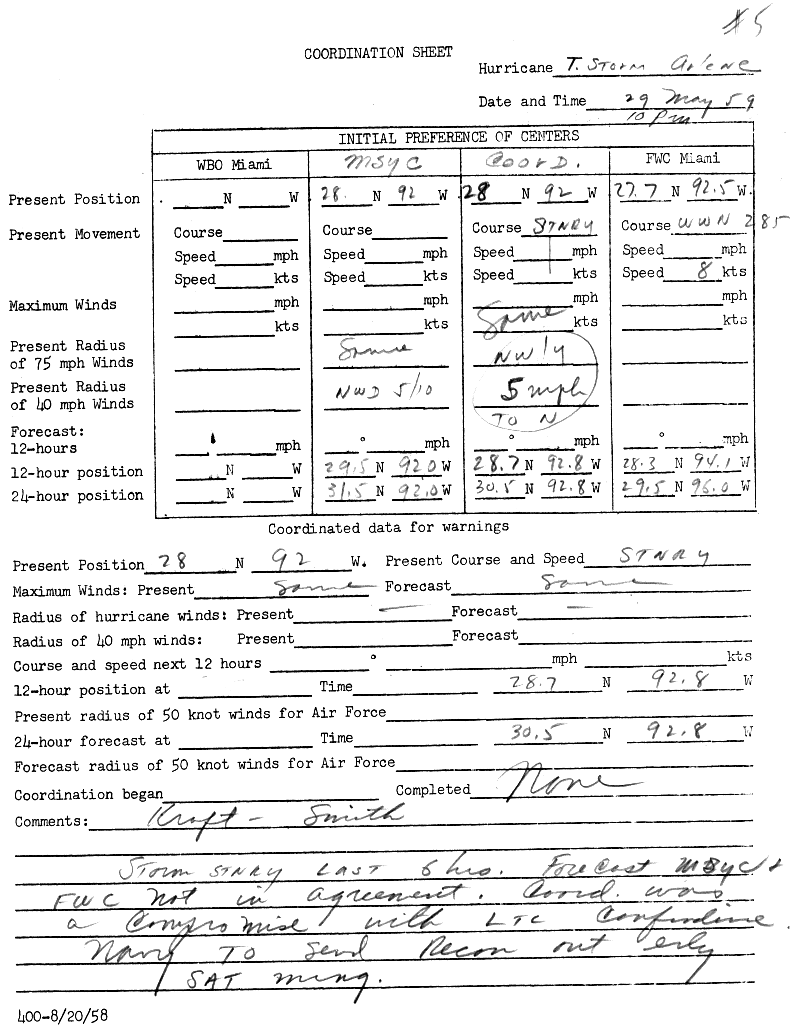 #5
COORDINATION SHEET
Hurricane T. STORM Arlene
Date and Time 29 May 59
10 Pm
INITIAL PREFERENCE OF CENTERS
WBO Miami MSYC COORD. FWC Miami
Present Position N W 28. N 92 W 28 N 92 W 27.7 N 92.5 W.
Present Movement Course Course Course STNRY Course WWN 285
Speed mph Speed mph Speed mph Speed mph
Speed kts Speed kts Speed kts Speed 8 kts
Maximum Winds mph mph mph mph
kts kts Same kts kts
Present Radius
of 75 mph Winds Same NW'ly
Present Radius
of 40 mph Winds NWD 5/10 5 mph
TO N
Forecast:
12-hours mph ° mph ° mph ° mph
12-hour position N W 29.5 N 92.0 W 28.7 N 92.8 W 28.3 N 94.1 W
24-hour position N W 31.5 N 92.0 W 30.5 N 92.8 W 29.5 N 96.0 W
Coordinated data for warnings
Present Position 28 N 92 W. Present Course and Speed STNRY
Maximum Winds: Present Same Forecast Same
Radius of hurricane winds: Present — Forecast —
Radius of 40 mph winds: Present Forecast
Course and speed next 12 hours ° mph kts
12-hour position at Time 28.7 N 92.8 W
Present radius of 50 knot winds for Air Force
24-hour forecast at Time 30.5 N 92.8 W
Forecast radius of 50 knot winds for Air Force
Coordination began Completed None
Comments: Kraft - Smith
STORM STNRY LAST 6 hrs. Forecast MSYC &
FWC not in agreement. Coord. was
a compromise with LTC
Navy TO send Recon out erly
SAT mrng.
400-8/20/58